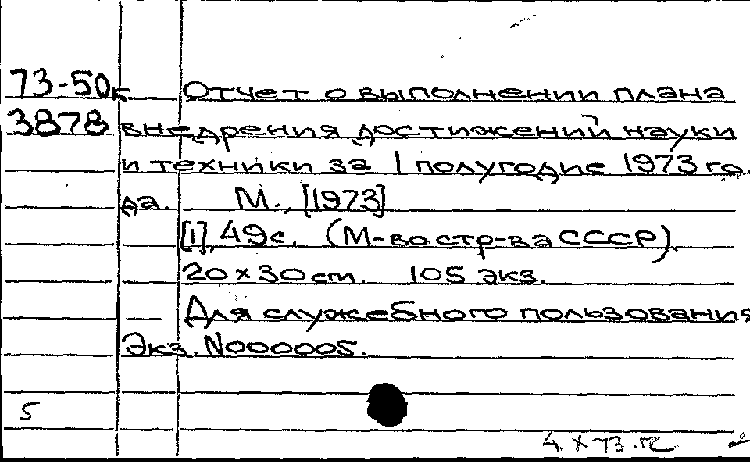 73-50к Отчет о выполнении плана
3878 внедрения достижений науки
и техники за I полугодие 1973 го-
да. М., [1973]
[1], 49 с. (М-во стр-ва СССР).
20 × 30 cm. 105 экз.
— Для служебного пользования
Экз. N000005.
5
4 X 73